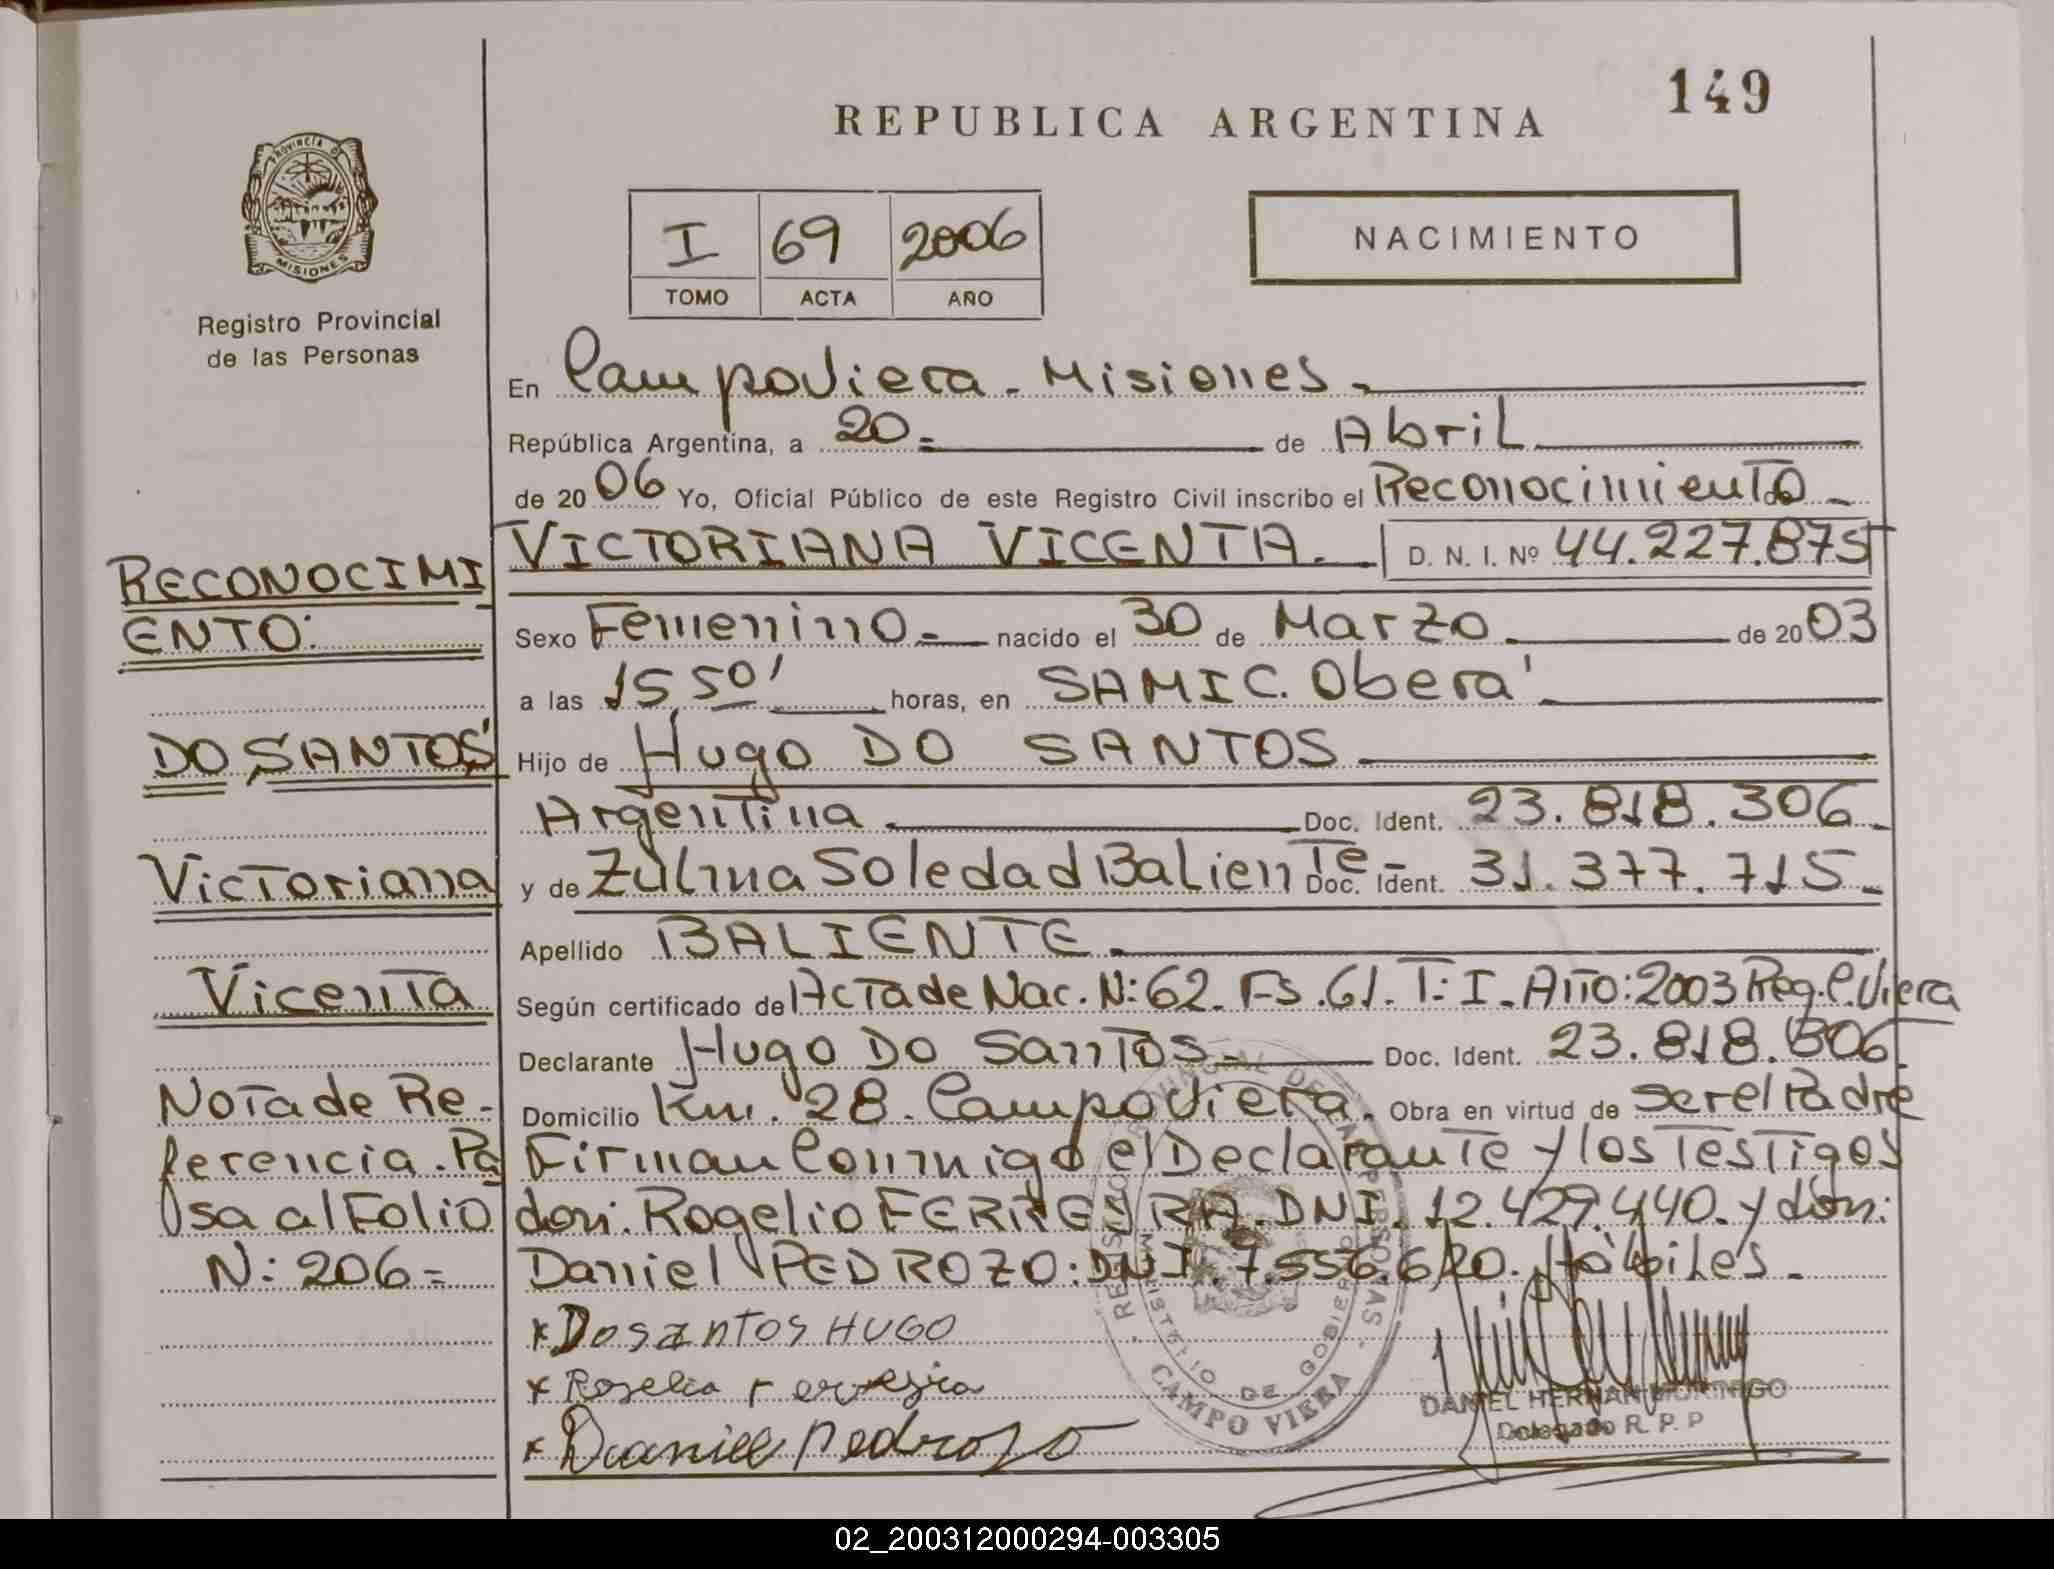 149
REPUBLICA ARGENTINA
PROVINCIA DE
MISIONES
Registro Provincial
de las Personas
I 69 2006
TOMO ACTA AÑO
NACIMIENTO
En Campoviera - Misiones -
República Argentina, a 20 = de Abril
de 2006 Yo, Oficial Público de este Registro Civil inscribo el Reconocimiento de
VICTORIANA VICENTA. - D. N. I. Nº 44.227.875
Sexo Femenino = nacido el 30 de Marzo de 2003
a las 15,50' horas, en SAMIC. Oberá
Hijo de Hugo DO SANTOS
Argentina Doc. Ident. 23.818.306-
y de Zulma Soledad Baliente - Doc. Ident. 31.377.715-
Apellido BALIENTE -
Según certificado de Acta de Nac. N: 62. Fs. 61. T: I. Año: 2003 Reg. C. Viera
Declarante Hugo DO SanTos - Doc. Ident. 23.818.306
Domicilio Km. 28. Campoviera. Obra en virtud de ser el Padre
Firman Conmigo el Declarante y los Testigos
don: Rogelio FERREYRA. DNI. 12.429.440. y don:
Daniel PEDROZO: DNI. 7.556.620. Hábiles -
x Dosantos HUGO
x
x Daniel Pedrozo
RECONOCIMI
ENTO:
DO SANTOS
Victoriana
Vicenta
Nota de Re-
ferencia. Pa
sa al Folio
N: 206=
REGISTRO PROVINCIAL DE LAS PERSONAS
MINISTERIO DE GOBIERNO
CAMPO VIERA
DANIEL HERNAN
Delegado R. P. P
02_200312000294-003305